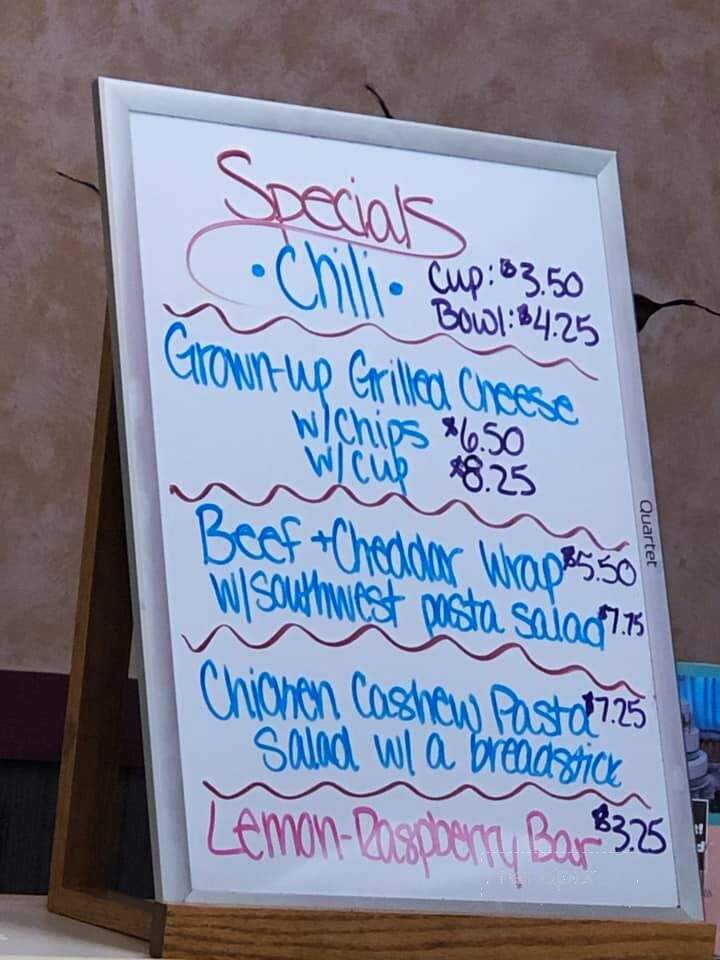 Specials
• Chili • Cup: $3.50
Bowl: $4.25
Grown-up Grilled Cheese
w/chips $6.50
w/cup $8.25
Beef + Cheddar Wrap $5.50
w/southwest pasta salad $7.75
Chicken Cashew Pasta $7.25
Salad w/ a breadstick
Lemon-Raspberry Bar $3.25
Quartet